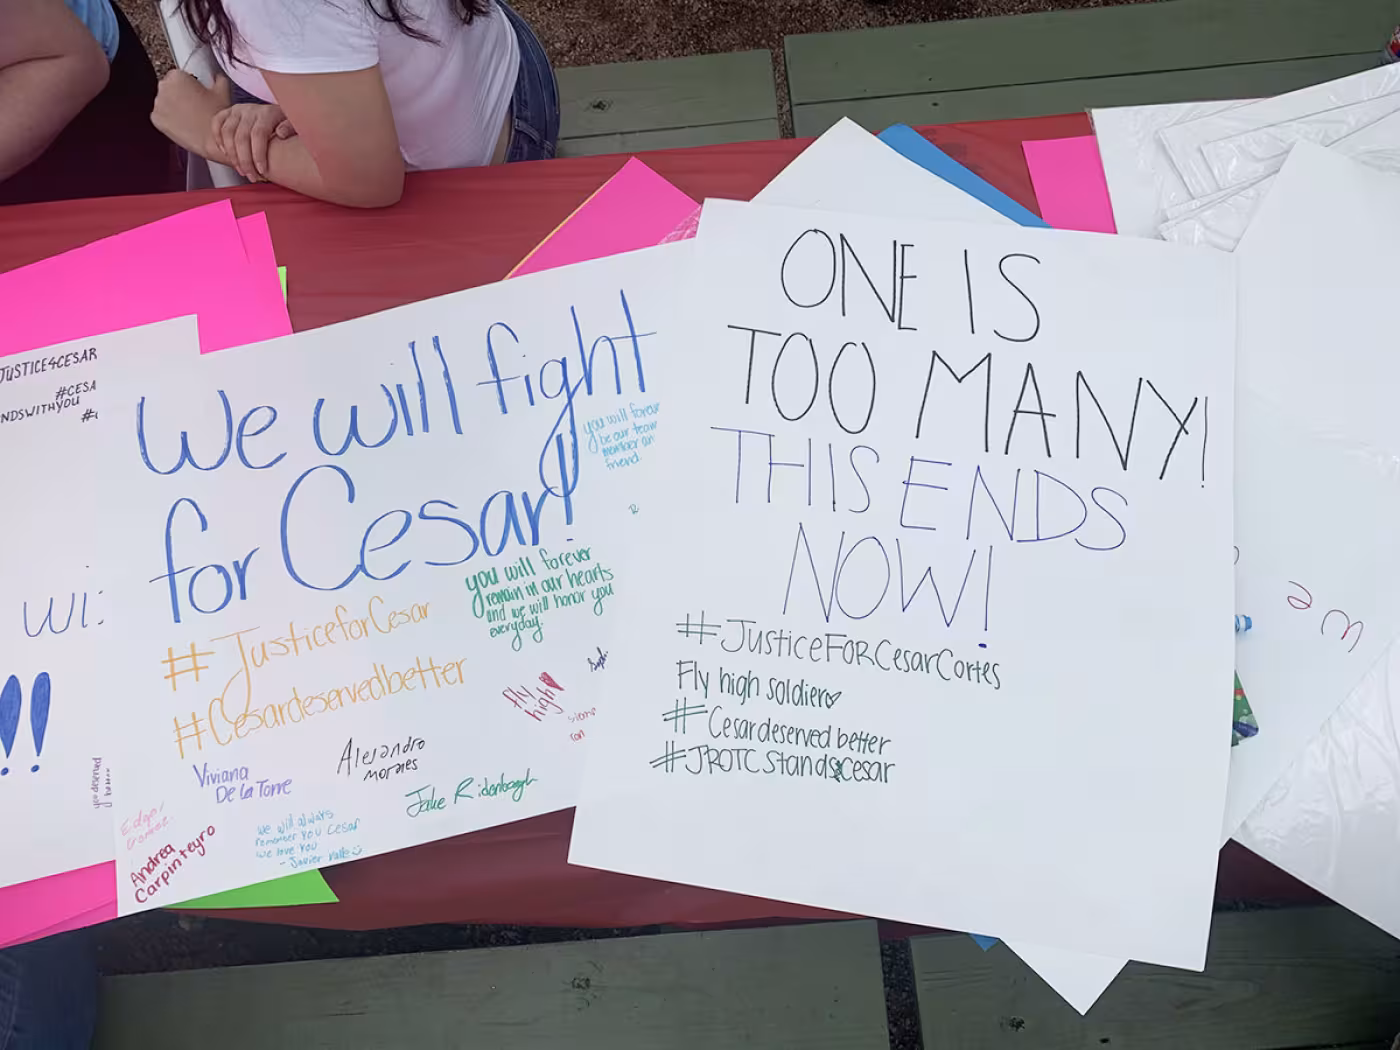 JUSTICE4CESAR
#CESA
NDSWITHYOU
#
wi
!!
you deserved
We will fight
for Cesar!
you will forever
be our team
member an
friend.
#JusticeforCesar
#Cesardeservedbetter
you will forever
remain in our hearts
and we will honor you
everyday.
Fly
high
Viviana
De La Torre
Alejandro
morales
Jake Ridenbaugh
Andrea
Carpinteyro
we will always
remember you Cesar
we love you
- Javier Valle
ONE IS
TOO MANY!
THIS ENDS
NOW!
#JUSTICEFORCesarCortés
Fly high soldier
#Cesardeserved better
#JROTCStands4Cesar
we